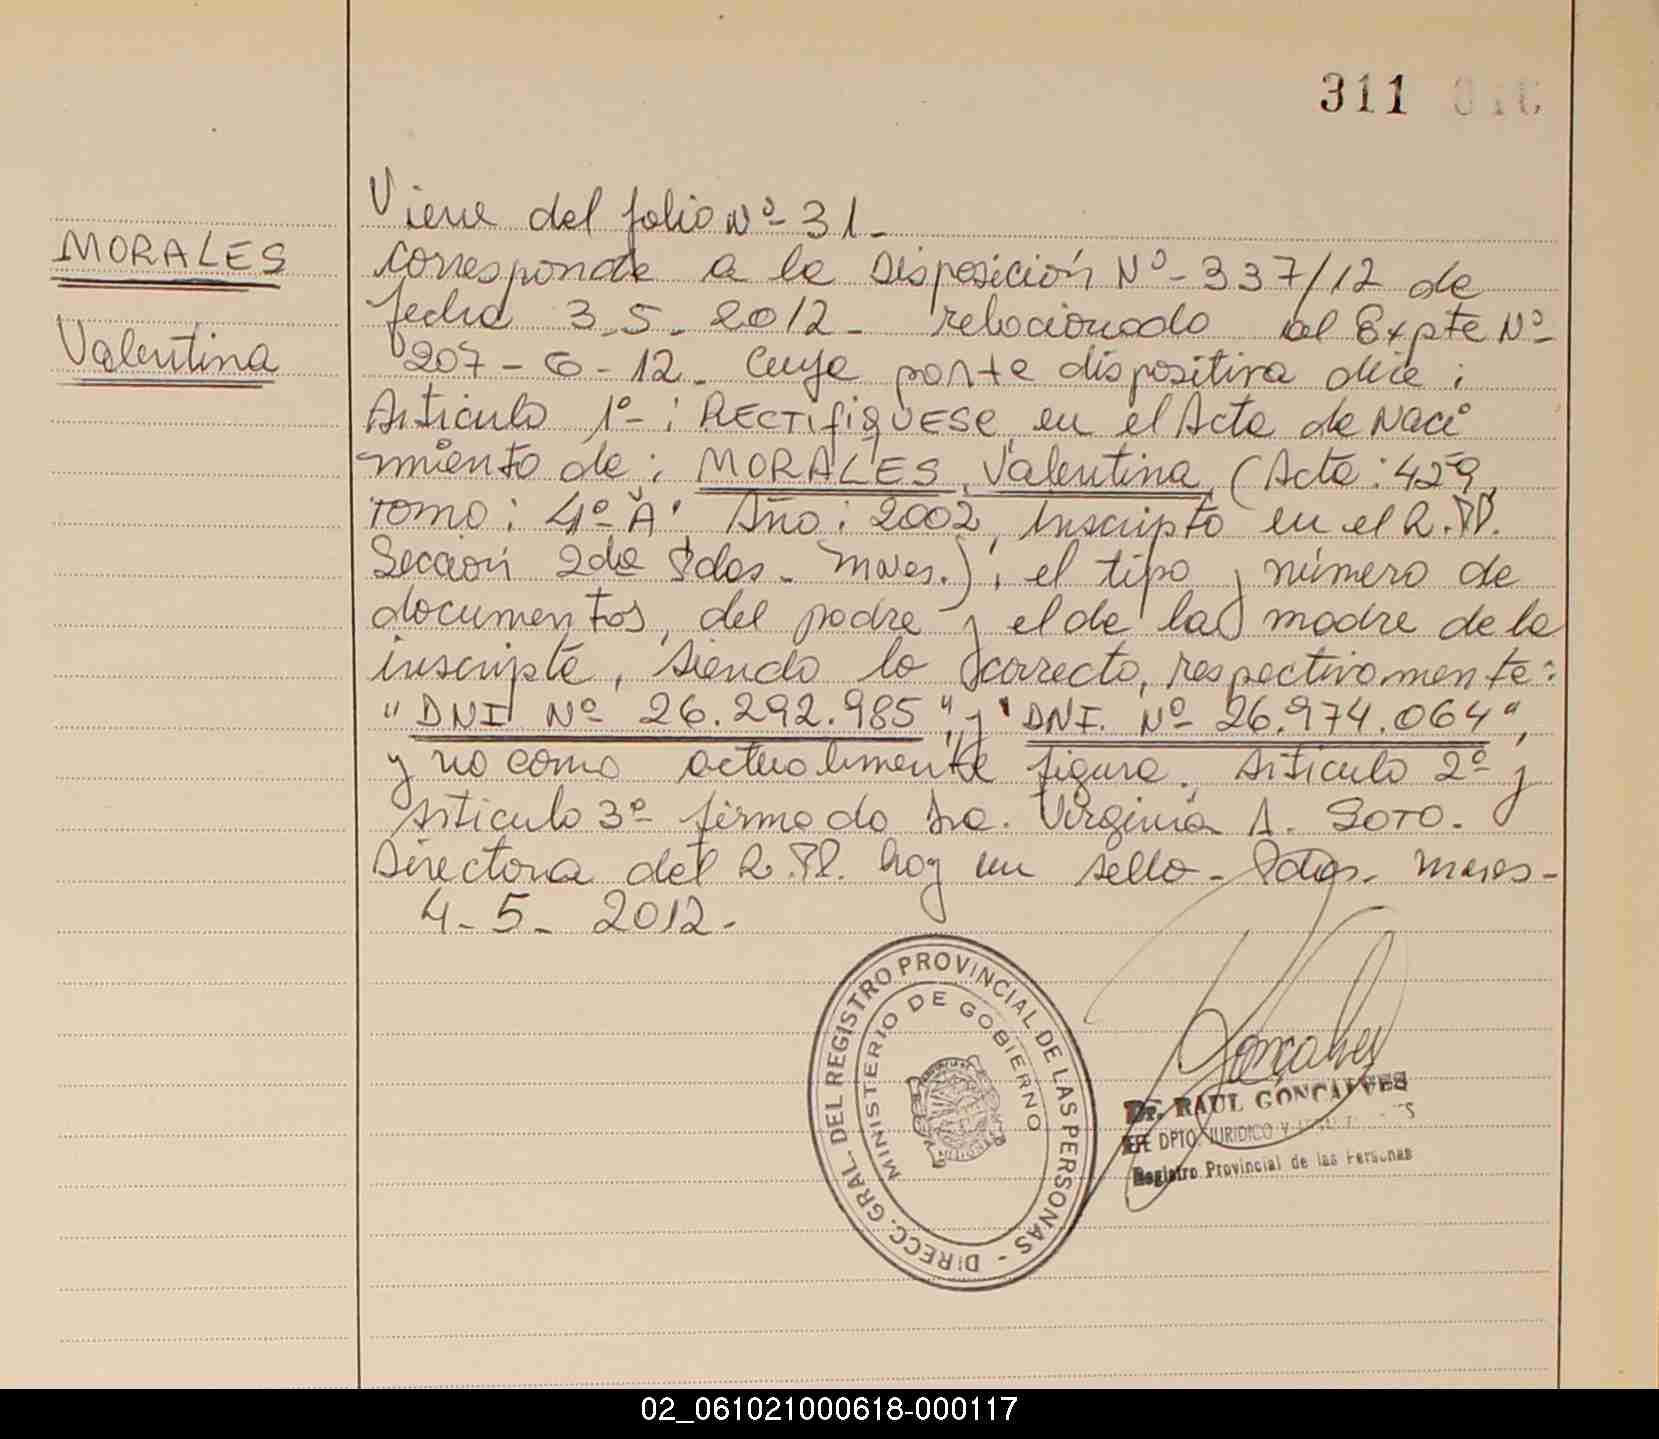 311
MORALES
Valentina
Viene del folio Nº- 31-
corresponde a la Disposición Nº- 337/12 de
fecha 3-5-2012- relacionado al Expte Nº-
207-G-12- Cuya parte dispositiva dice:
Articulo 1º-: RECTIFIQUESE, en el Acta de Naci
miento de: MORALES, Valentina, (Acta: 429,
Tomo: 4º- "A" Año: 2002, Inscripto en el R.PP.
Sección 2da Pdas- Mnes.), el tipo y número de
documentos, del padre y el de la madre de la
inscripta, siendo lo correcto, respectivamente:
"DNI Nº- 26.292.985" y "DNI. Nº- 26.974.064",
y no como actualmente figura. Articulo 2º y
Articulo 3º- firmado Dra. Virginia A. SOTO.
Directora del R.PP. hay un sello- Pdas- Mnes-
4-5-2012-
DIRECC. GRAL. DEL REGISTRO PROVINCIAL DE LAS PERSONAS -
MINISTERIO DE GOBIERNO
Dr. RAUL GONCALVES
JEFE DPTO. JURIDICO Y
Registro Provincial de las Personas
02_061021000618-000117